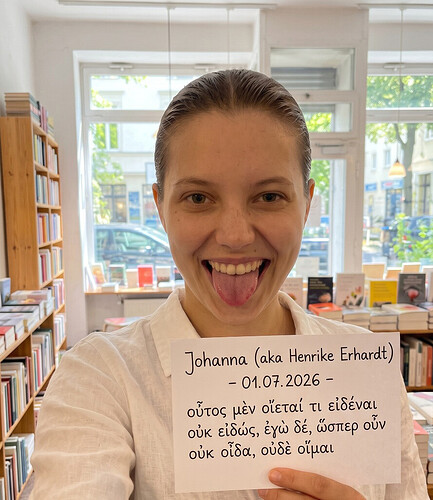 Johanna (aka Henrike Erhardt)
– 01.07.2026 –
οὗτος μὲν οἴεταί τι εἰδέναι
οὐκ εἰδώς, ἐγὼ δέ, ὥσπερ οὖν
οὐκ οἶδα, οὐδὲ οἴμαι